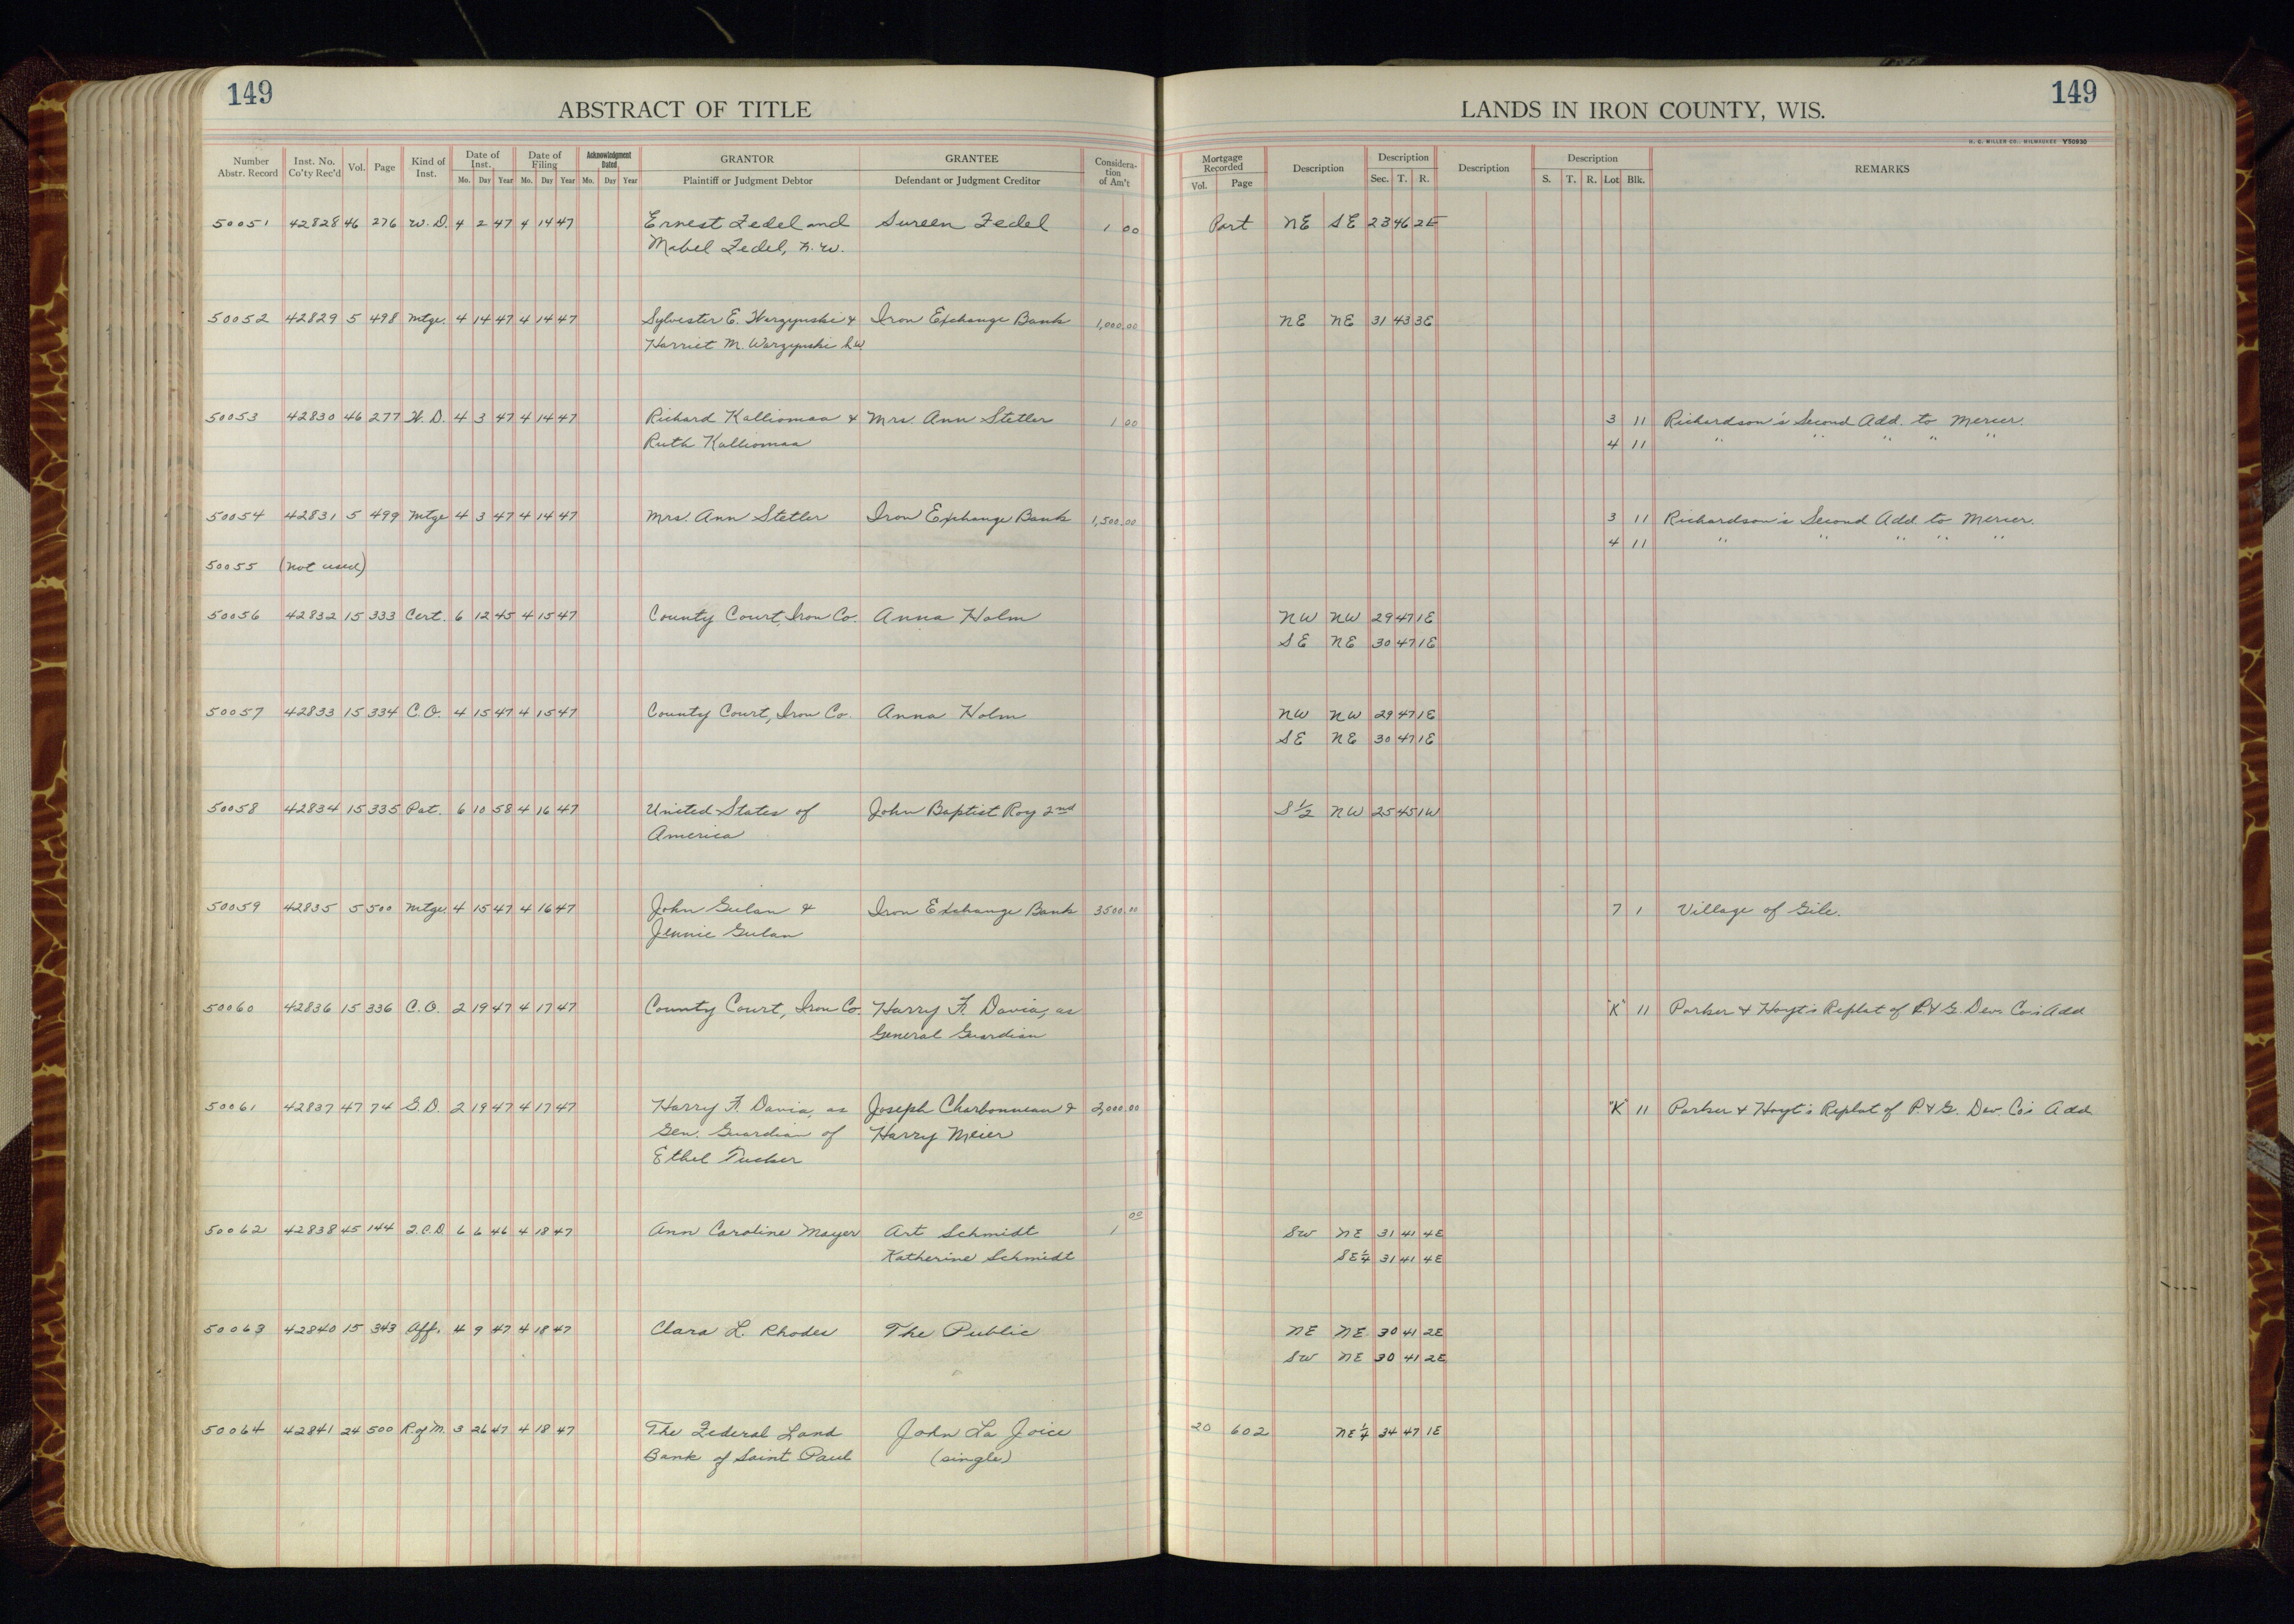 149
ABSTRACT OF TITLE
LANDS IN IRON COUNTY, WIS.
149
H. C. MILLER CO., MILWAUKEE Y50930
Number Abstr. Record Inst. No. Co'ty Rec'd Vol. Page Kind of Inst. Date of Inst. Mo. Day Year Date of Filing Mo. Day Year Acknowledgment Dated Mo. Day Year GRANTOR Plaintiff or Judgment Debtor GRANTEE Defendant or Judgment Creditor Considera-tion of Am't Mortgage Recorded Vol. Page Description Description Sec. T. R. Description Description S. T. R. Lot Blk. REMARKS
50051 42828 46 276 W. D. 4 2 47 4 14 47 Ernest Zedel and Sureen Zedel 1 00 Part NE SE 23 46 2E
Mabel Zedel, h. w.
50052 42829 5 498 Mtge. 4 14 47 4 14 47 Sylvester E. Warzynski & Iron Exchange Bank 1,000.00 NE NE 31 43 3E
Harriet M. Warzynski h.w.
50053 42830 46 277 W. D. 4 3 47 4 14 47 Richard Kalliomaa & Mrs. Ann Stetler 1 00 3 11 Richardson's Second Add. to Mercer.
Ruth Kalliomaa 4 11 " " " " "
50054 42831 5 499 Mtge 4 3 47 4 14 47 Mrs. Ann Stetler Iron Exchange Bank 1,500.00 3 11 Richardson's Second Add to Mercer.
4 11 " " " " "
50055 (not used)
50056 42832 15 333 Cert. 6 12 45 4 15 47 County Court, Iron Co. Anna Holm NW NW 29 47 1E
SE NE 30 47 1E
50057 42833 15 334 C.O. 4 15 47 4 15 47 County Court, Iron Co. Anna Holm NW NW 29 47 1E
SE NE 30 47 1E
50058 42834 15 335 Pat. 6 10 58 4 16 47 United States of John Baptist Roy 2nd S½ NW 25 45 1W
America
50059 42835 5 500 Mtge. 4 15 47 4 16 47 John Gulan & Iron Exchange Bank 3500.00 7 1 Village of Gile.
Jennie Gulan
50060 42836 15 336 C. O. 2 19 47 4 17 47 County Court, Iron Co. Harry F. Davia, as "K" 11 Parker & Hoyt's Replat of P. & G. Dev. Co's Add
General Guardian
50061 42837 47 74 G.D. 2 19 47 4 17 47 Harry F. Davia, as Joseph Charbonneau & 2,000.00 "K" 11 Parker & Hoyt's Replat of P. & G. Dev. Co's Add
Gen. Guardian of Harry Meier
Ethel Tucker
50062 42838 45 144 Q.C.D. 6 6 46 4 18 47 Ann Caroline Mayer Art Schmidt 1 00 SW NE 31 41 4E
Katherine Schmidt SE¼ 31 41 4E
50063 42840 15 343 Aff. 4 9 47 4 18 47 Clara L. Rhodes The Public NE NE 30 41 2E
SW NE 30 41 2E
50064 42841 24 500 R. of M. 3 26 47 4 18 47 The Federal Land John La Joice 20 602 NE¼ 34 47 1E
Bank of Saint Paul (single)